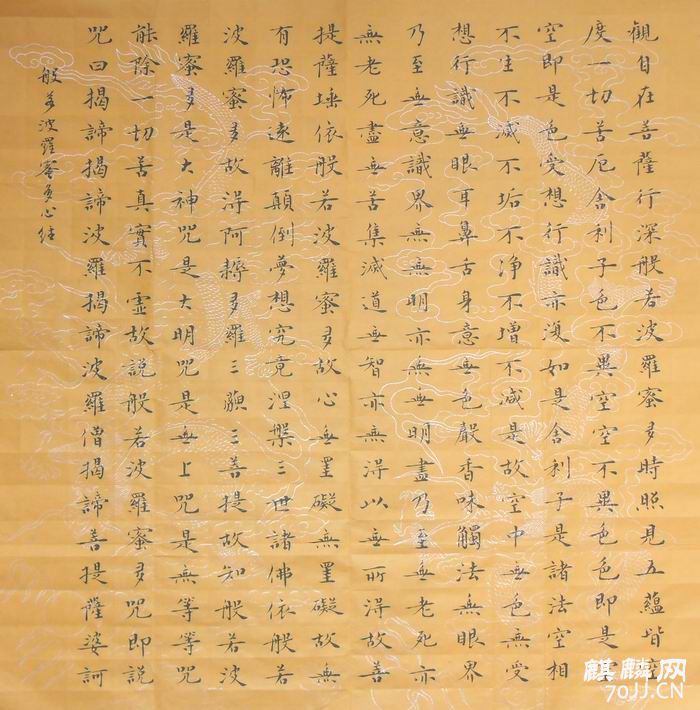 觀自在菩薩行深般若波羅蜜多時照見五蘊皆空
度一切苦厄舍利子色不異空空不異色色即是空
空即是色受想行識亦復如是舍利子是諸法空相
不生不滅不垢不净不增不減是故空中無色無受
想行識無眼耳鼻舌身意無色嚴香味觸法無眼界
乃至無意識界無無明亦無無明盡乃至無老死亦
無老死盡無苦集滅道無智亦無得以無所得故菩
提薩埵依般若波羅蜜多故心無罣礙無罣礙故無
有恐怖遠離顛倒夢想究竟涅槃三世諸佛依般若
波羅蜜多故得阿耨多羅三藐三菩提故知般若波
羅蜜多是大神咒是大明咒是無上咒是無等等咒
能除一切苦真實不虛故説般若波羅蜜多咒即説
咒曰揭諦揭諦波羅揭諦波羅僧揭諦菩提薩婆訶
般若波羅蜜多心经
麒麟网
70JJ.CN